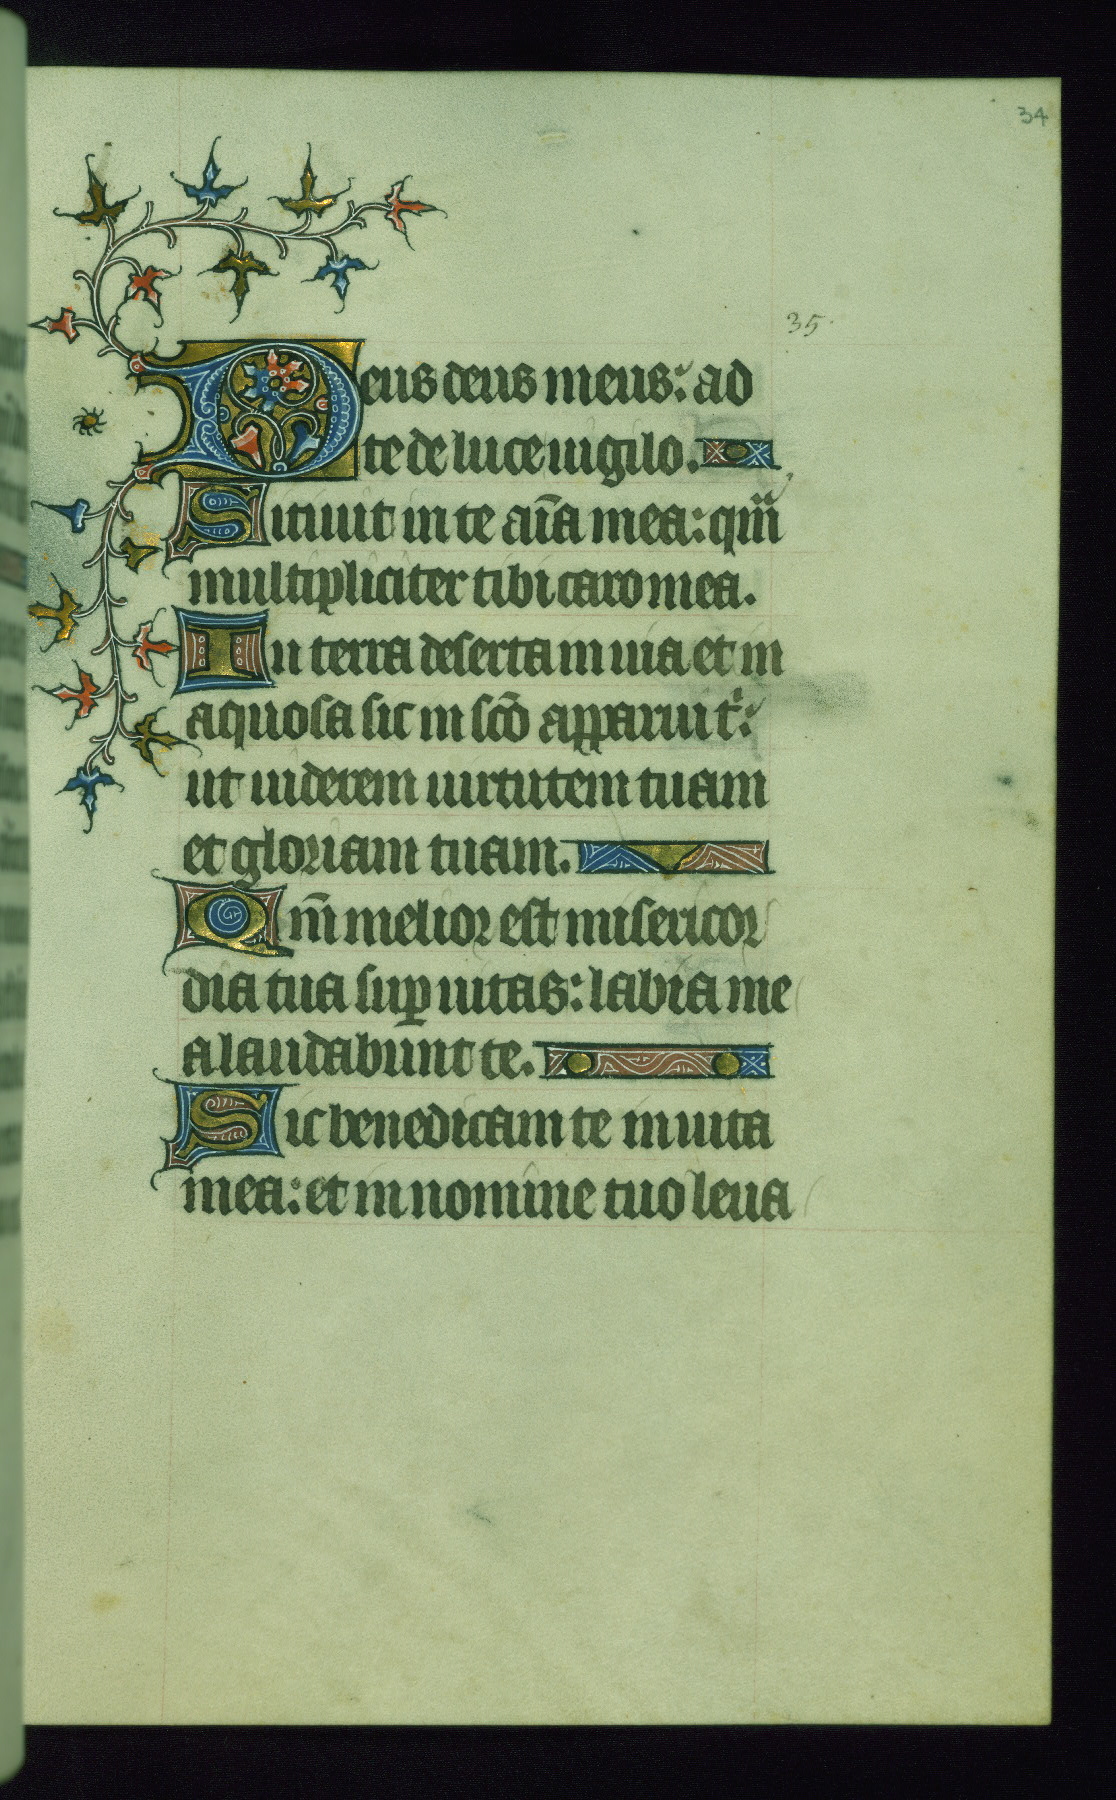 34
35.
Deus deus meus: ad
te de luce uigilo.
Sitiuit in te aīa mea: qm̄
multipliciter tibi caro mea.
In terra deserta inuia et in
aquosa sic in scō apparui t':
ut uiderem uirtutem tuam
et gloriam tuam.
Qm̄ melior est misericor
dia tua sup uitas: labia me
a laudabunt te.
Sic benedicam te in uita
mea: et in nomine tuo leua